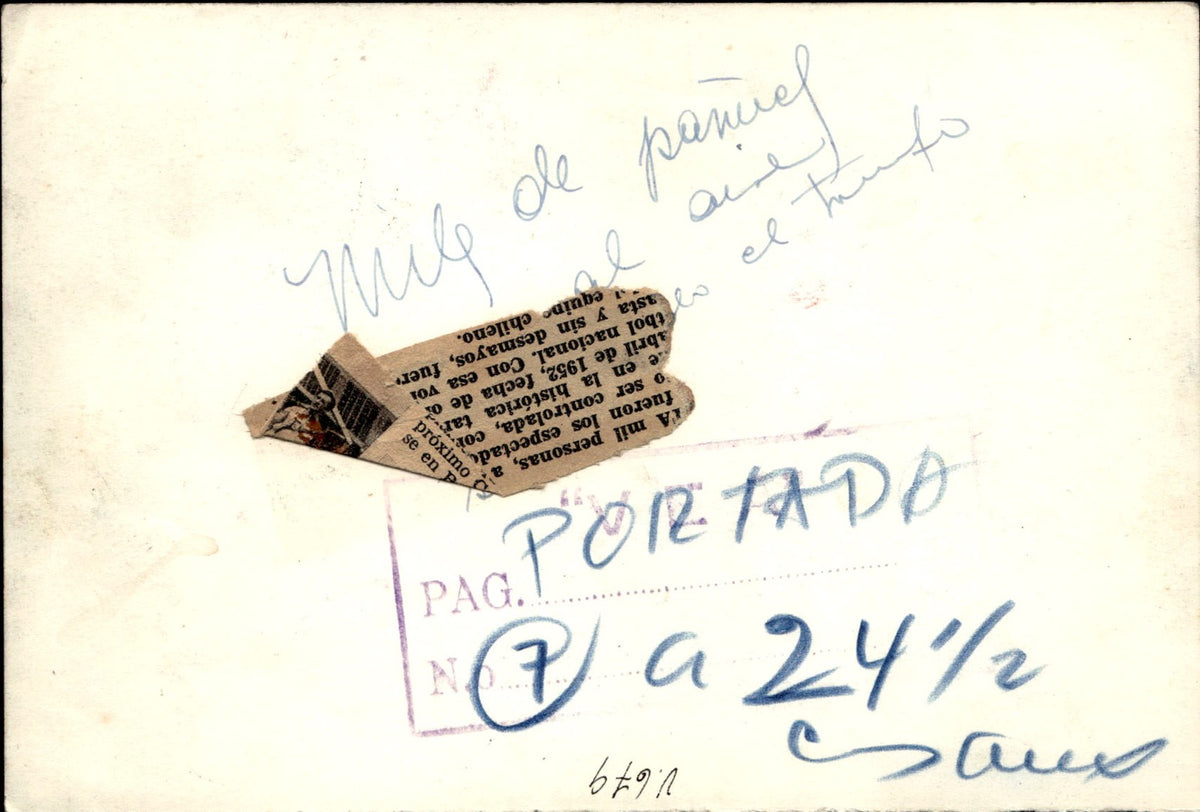 Miles de pañuel
al aire
el triunfo
TA mil personas, a
fueron los espectado
o ser controlada, cor
e en la histórica, tar
abril de 1952, fecha de o
tbol nacional. Con esa vo
asta y sin desmayos, fuer
equipo chileno.
próximo
se en
"V E
PORTADA
PAG.
No 7 a 24 1/2